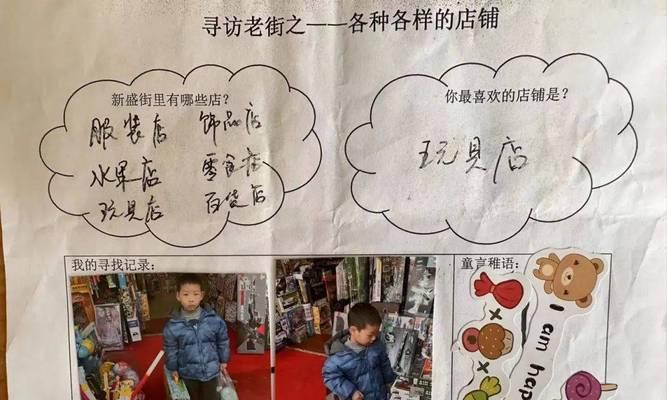 寻访老街之——各种各样的店铺
新盛街里有哪些店？
服装店 饰品店
水果店 零食店
玩具店 百货店
你最喜欢的店铺是？
玩具店
我的寻找记录：
童言稚语：
I am hap